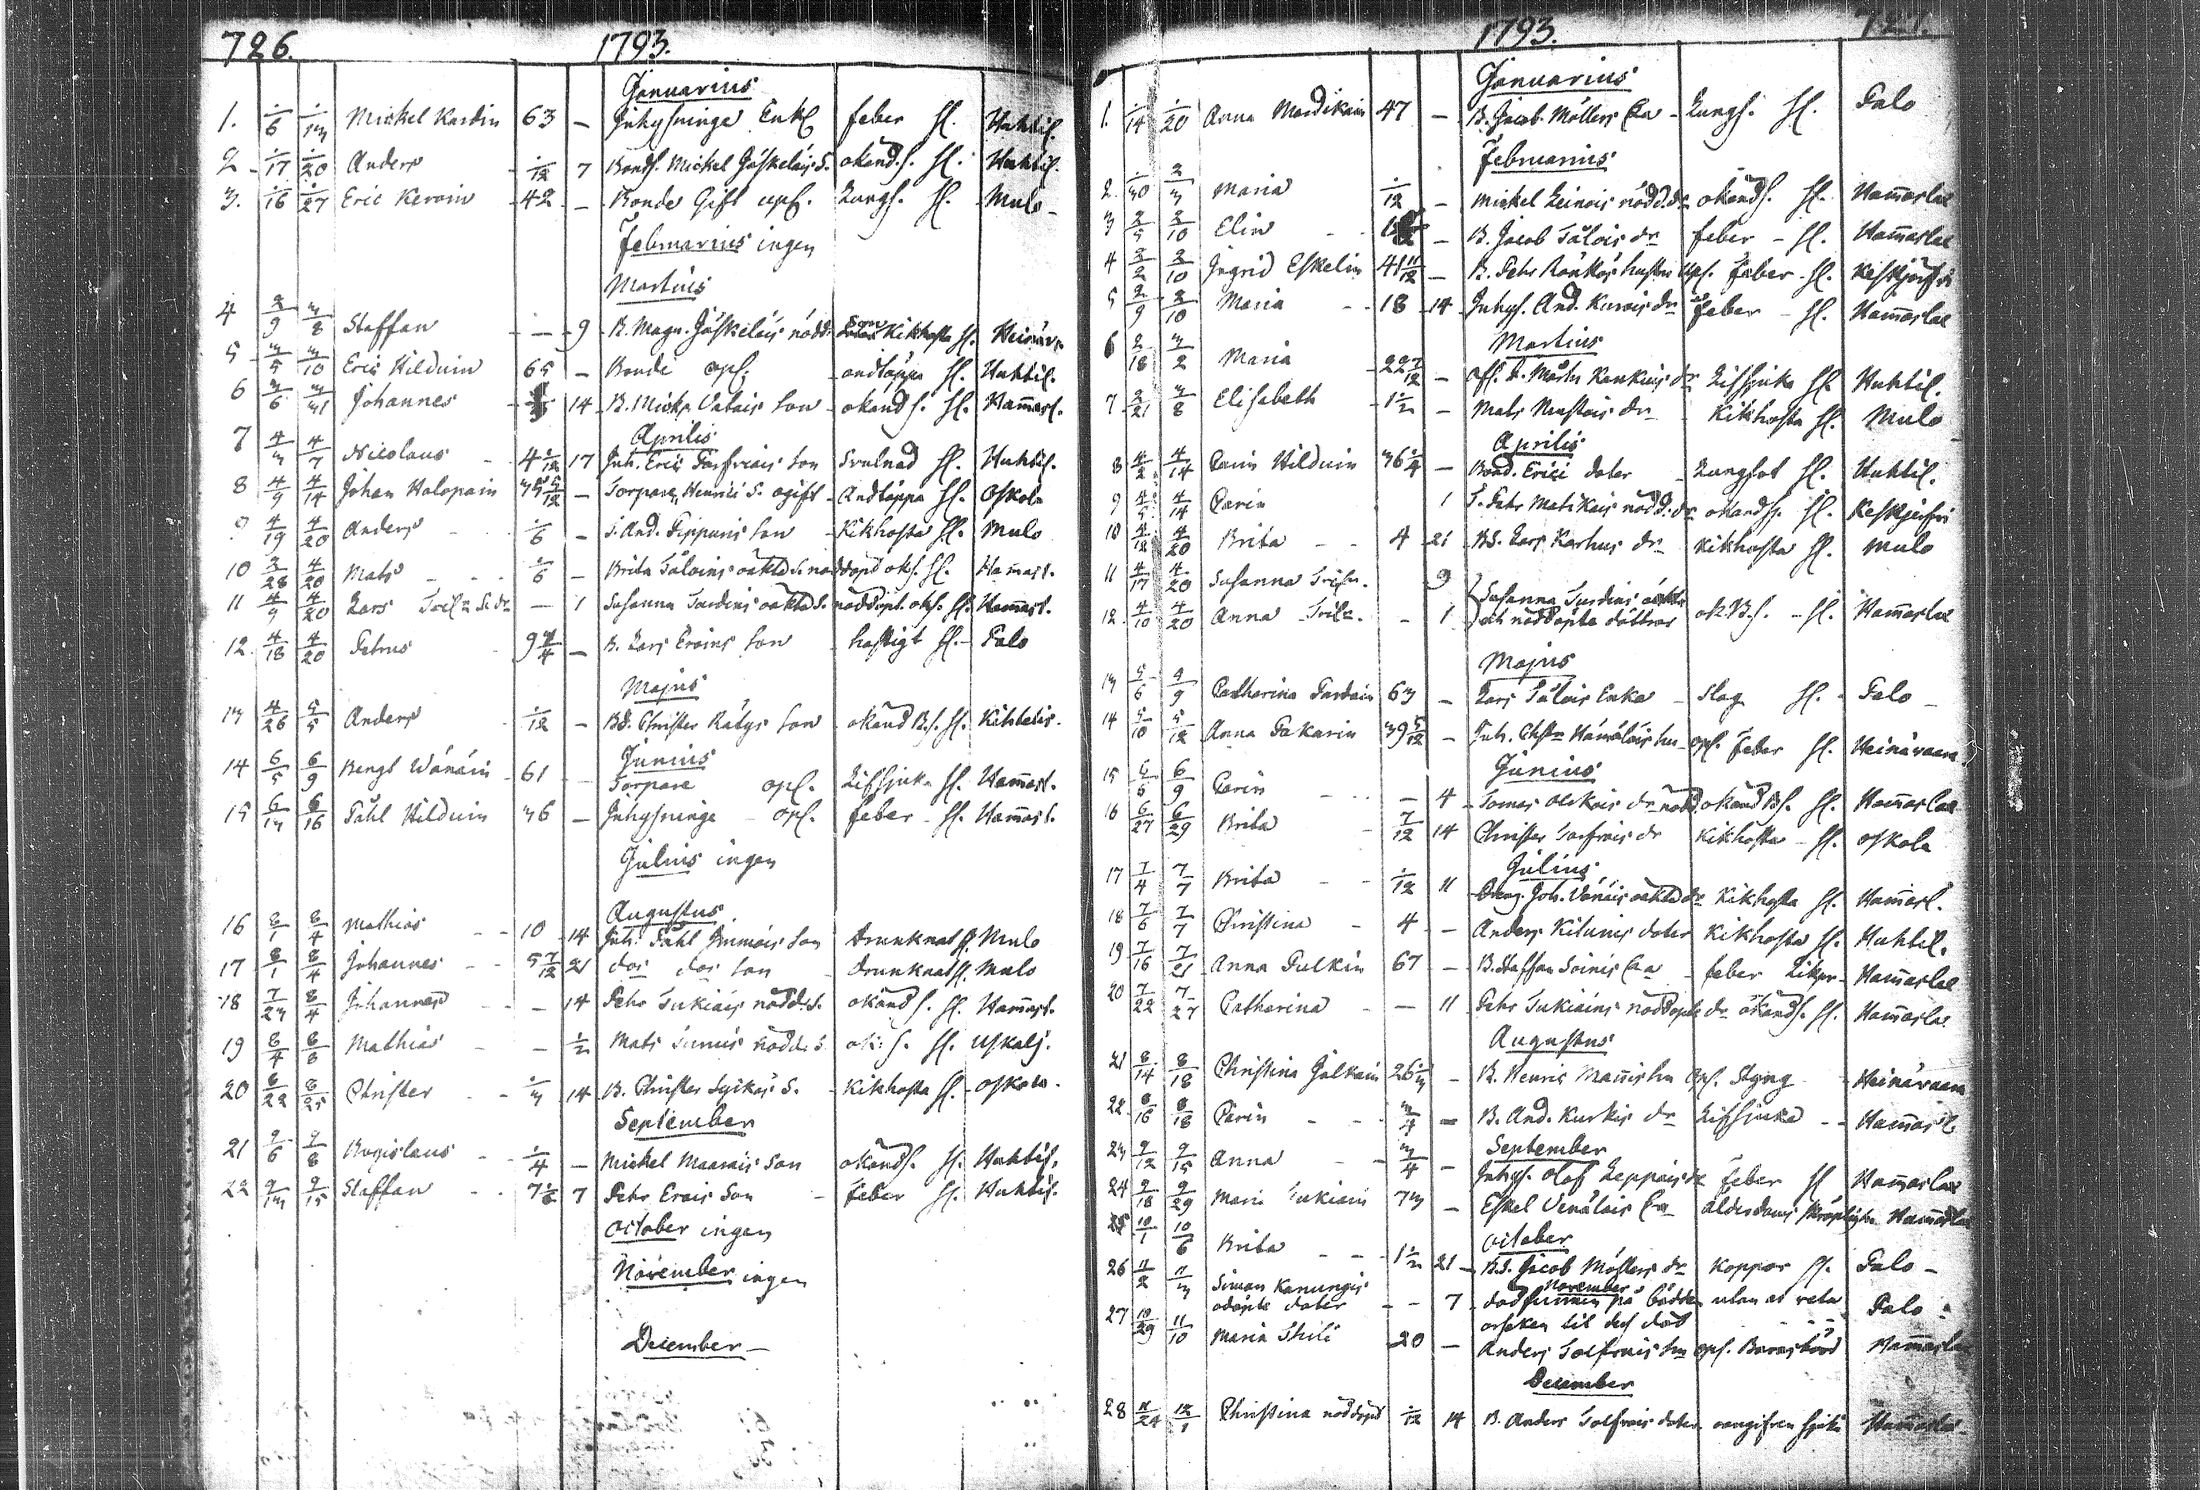 726. 1793.
Januarius
1. 1/6 1/13 Mickel Kardin 63 – Inhysninge Enkl. feber Sl. Huhtil.
2 1/17 1/20 Anders 1/12 7 Bonds. Mickel Jäskeläis S. okänd s. Sl. Huhtil.
3. 1/16 1/27 Eric Kervin 42 – Bonde Gift upl. Lungs. Sl. Mulo
Februarius ingen
Martius
4 2/9 3/8 Staffan – 9 B. Magn. Jäskeläis nödd. Son Kikhosta Sl. Heinäv.
5 3/5 3/10 Eric Hilduin 65 – Bonde opl. andtäppa Sl. Huhtil.
6 3/6 3/31 Johannes 14 B. Mick. Valais son okänd s. Sl. Hammasl.
Aprilis
7 4/3 4/7 Nicolaus 4 1/12 17 Inh. Eric Torfvais son Svulnad Sl. Huhtil.
8 4/9 4/14 Johan Holopain 35 5/12 – Torpare Henrici S. ogift Andtäppa Sl. Oskola
9 4/19 4/20 Anders 1/6 – S. And. Pippuris son Kikhosta Sl. Mulo
10 3/28 4/20 Mats 1/6 – Brita Tåloins oäkta S. nöddöpt ok. s. Sl. Hammasl.
11 4/9 4/20 Lars – 1 Susanna Surdins oäkta S. nöddöpt. ok. s. Sl. Hammasl.
12. 4/18 4/20 Petrus 9 3/4 – B. Lars Eroins son hastigt Sl. Palo
Majus
13 4/26 5/5 Anders 1/12 – BS. Christer Rätys son okänd B.s. Sl. Kihtelis.
Junius
14 6/5 6/9 Bengt Wänäin 61 Torpare opl. Lifsjuka Sl. Hammasl.
15 6/13 6/16 Påhl Hilduin 36 – Inhysninge opl. feber Sl. Hammasl.
Julius ingen
Augustus
16 8/1 8/4 Mathias 10 14 Inh. Påhl Immois son Drunknat Sl. Mulo
17 8/1 8/4 Johannes 5 7/12 21 dos dos son drunknat Sl. Mulo
18 7/23 8/4 Johannes – 14 Petr Tukiais nödd. S. okänd s. Sl. Hammasl.
19 8/4 8/8 Mathias – 1/2 Mats Sunis nödd. S. ok. s. Sl. Uskalj.
20 8/22 8/25 Christer 1/3 14 B. Christer Sykäs S. Kikhosta Sl. Oskola.
September
21 9/6 9/8 Bogislaus 1/4 – Mickel Maarais Son okänd s. Sl. Huhtil.
22 9/13 9/15 Staffan 7 7 Petr Erois Son feber Sl. Huhtil.
October ingen
November ingen
December –
1793. 727.
Januarius
1. 1/14 1/20 Anna Mardikain 47 – B. Jacob Möllers Lungs. Sl. Palo
Februarius
2. 1/30 2/3 Maria 1/12 – Mickel Leinois nödd. dr okänd s. Sl. Hammaslax
3 2/5 2/10 Elin – B. Jacob Tålois dr feber – Sl. Hammaslax
4 2/2 2/10 Ingrid Eskelin 41 11/12 – B. Petr Ränkäs hustru Upl. feber Sl. Keskjerfvi
5 2/9 2/10 Maria 18 14 Inhys. And. Kurois dr feber – Sl. Hammaslax
Martius
6 2/18 3/2 Maria 22 7/12 – Afl. B. Mårten Kankuis dr Lifsjuka Sl. Huhtil.
7 2/21 3/8 Elisabeth 1 1/2 – Mats Mustois dr Kikhosta Sl. Mulo
Aprilis
8 4/2 4/14 Carin Hilduin 36 1/4 – Bond. Erici doter Lungsot Sl. Huhtil.
9 4/5 4/14 Carin 1 S. Petr Matikais nödd. dr okänd s. Sl. Keskjerfvi
10 4/12 4/20 Brita 4 21 BS. Lars Karhus dr Kikhosta Sl. Mulo
11 4/17 4/20 Susanna 9 Susanna Surdins oäkta
12. 4/10 4/20 Anna – 1 och nöddöpta döttrar ok. B.s. – Sl. Hammaslax
Majus
13 5/6 5/9 Catharina Pardain 63 – Lars Tålois Enka Slag Sl. Palo
14 5/10 5/12 Anna Pakarin 39 5/12 – Inh. Chstr Hämäläis hu opl. feber Sl. Heinävaara
Junius
15 6/6 6/9 Carin – 4 Tomas Olckois dr nödd. okänd B.s. Sl. Hammaslax
16 6/27 6/29 Brita 7/12 14 Christer Torfvais dr Kikhosta – Sl. Oskola
Julius
17 7/4 7/7 Brita 1/12 11 Joh. Vänäis oäkta dr Kikhosta Sl. Hammasl.
18 7/6 7/7 Christina 4 – Anders Kitunis doter Kikhosta Sl. Huhtil.
19 7/16 7/21 Anna Pulkin 67 – B. Staffan Soinis feber Hammaslax
20 7/22 7/27 Catharina – 11 Petr Tukiains nöddöpte dr okänd s. Sl. Hammaslax
Augustus
21 8/14 8/18 Christina Jalkain 26 1/3 – B. Henric Mannis hu opl. Styng Heinävaara
22. 8/16 8/18 Carin – B. And. Kurkis dr Lifsjuka – Hammasl.
September
23 9/12 9/15 Anna 3/4 – Inhys. Olof Leppäis dr feber Sl Hammaslax
24 9/18 9/29 Maria Tukiain 73 – Eskel Venäläis ålderdoms skröplighet Hammaslax
October
25 10/1 10/6 Brita 1 1/2 21 BS. Jacob Möllers dr Koppor Sl. Palo –
November
26 11/2 11/3 Simon Kanungis odöpte doter 7 död funnen på bädden utan at veta orsaken til des död Palo
27 10/29 11/10 Maria Ihili 20 – Anders Torfvais hu opl. Barnsbörd Hammaslax
December
28 11/24 12/1 Christina nöddöpt 1/12 14 B. Anders Torfvais doter oangifven sjuk Hammaslax